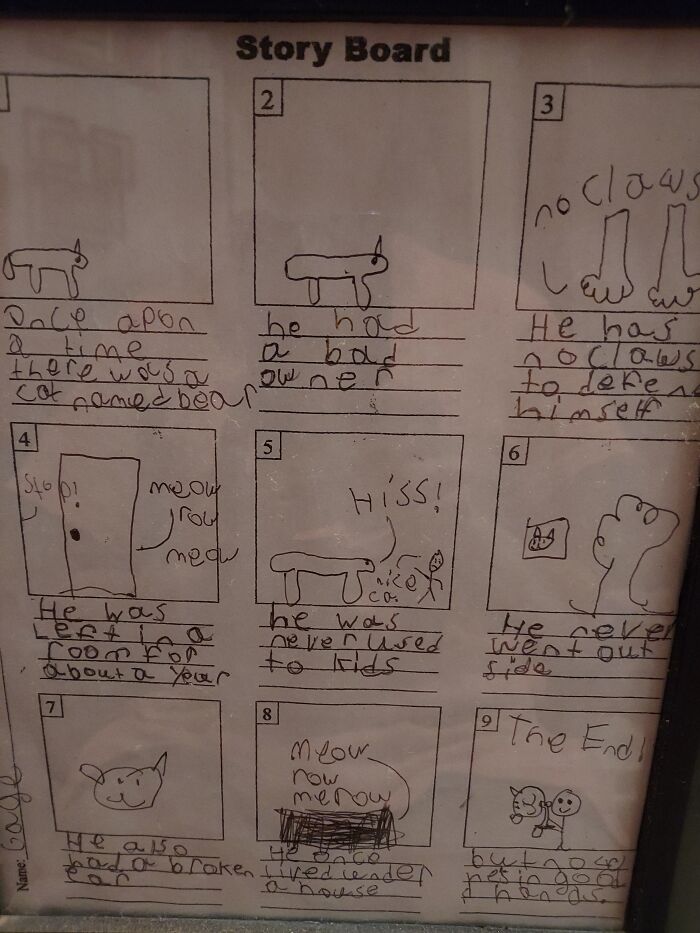 Story Board
2
3
no claws
Once apon
a time
there was a
cat named bear
he had
a bad
owner
He has
no claws
to defen
himself
4
Stop!
meow
row
meow
5
HISS!
nice
ca.
6
He was
Left in a
room for
about a year
he was
never used
to kids
He never
went out
side
7
8
meow
row
merow
9
The End!
He also
had a broken
ear
He once
lived under
a house
but now
hes in good
hands.
Name: Gage